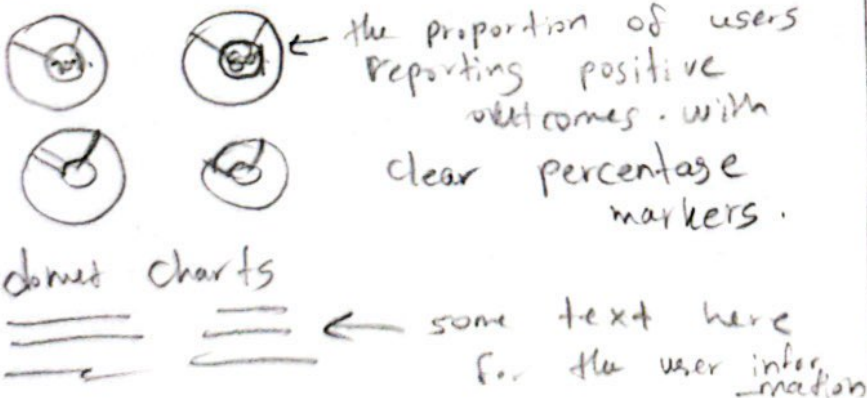 the proportion of users
reporting positive
outcomes. with
clear percentage
markers.
donut charts
some text here
for the user infor
mation